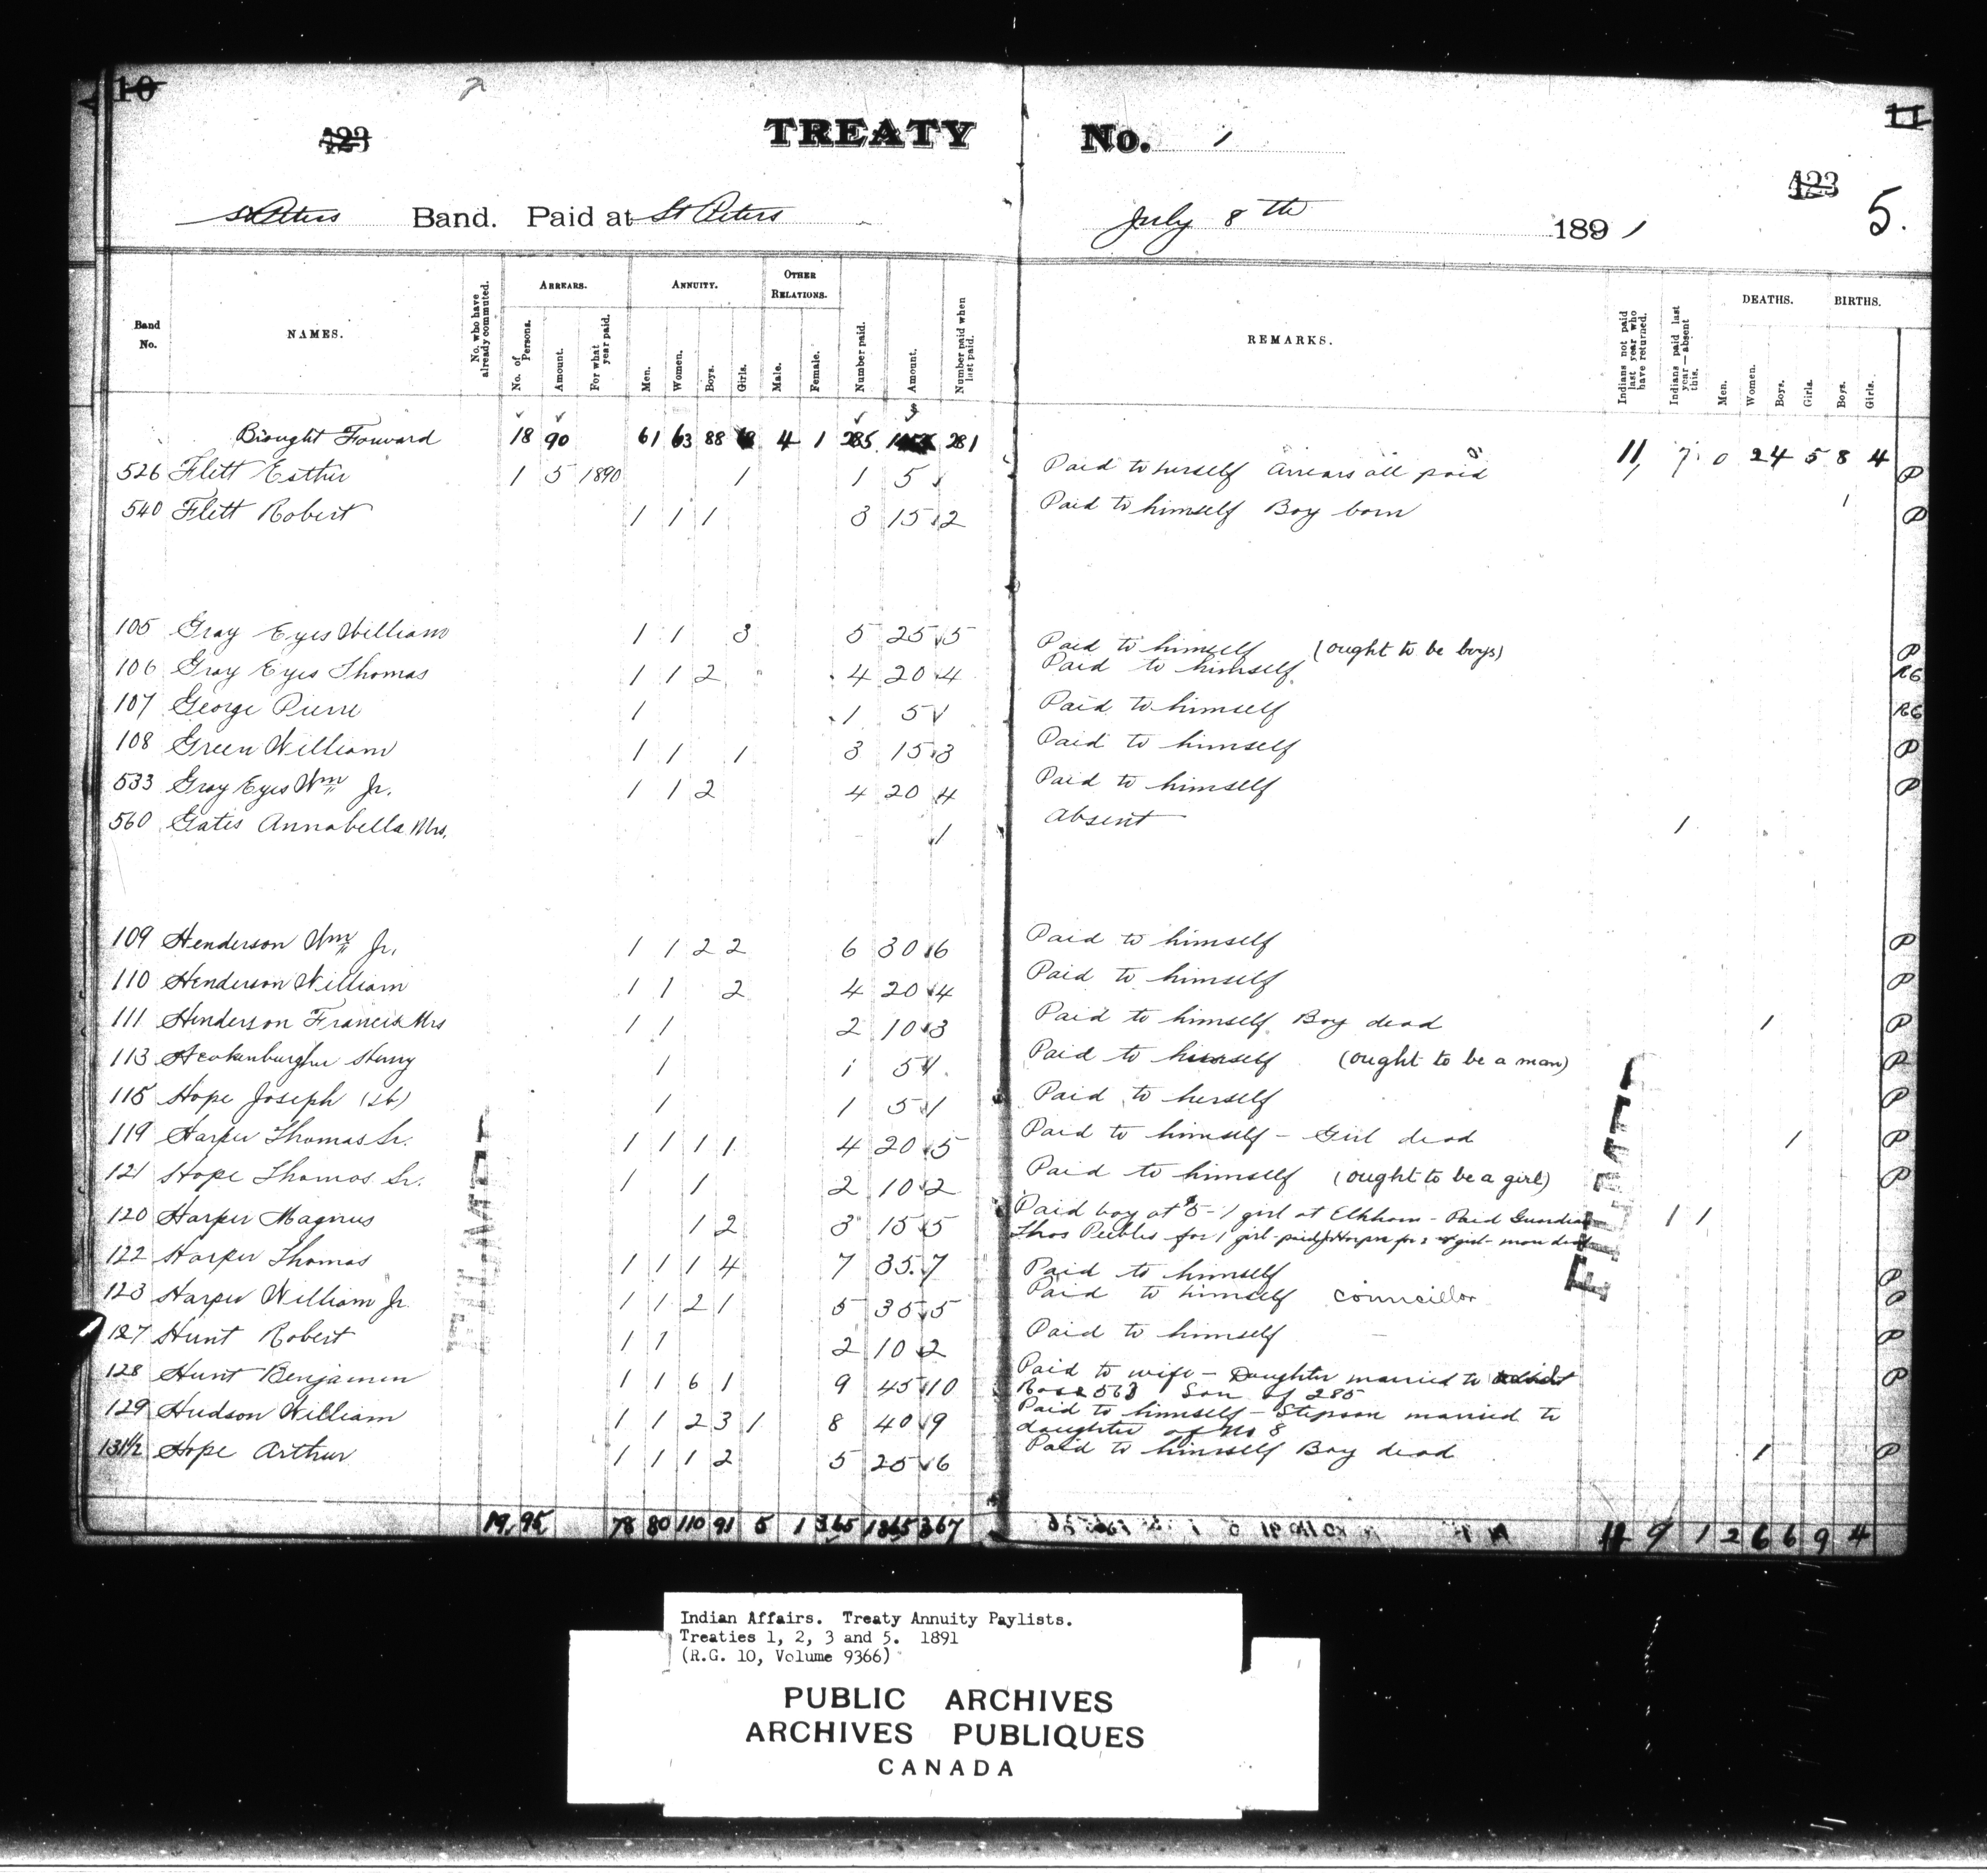 10 11
423 TREATY No. 1 423
St Peters Band. Paid at St Peters July 8th 1891 5.
Band No. NAMES. No. who have already commuted. ARREARS. No. of Persons. Amount. For what year paid. ANNUITY. Men. Women. Boys. Girls. OTHER RELATIONS. Male. Female. Number paid. Amount. Number paid when last paid. REMARKS. Indians not paid last year who have returned. Indians paid last year—absent this. DEATHS. Men. Women. Boys. Girls. BIRTHS. Boys. Girls.
Brought Forward 18 90 61 63 88 4 1 285 281 11 7 0 2 4 5 8 4
526 Flett Esther 1 5 1890 1 1 5 1 Paid to herself Arrears all paid P
540 Flett Robert 1 1 1 3 15 2 Paid to himself Boy born 1 P
105 Gray Eyes William 1 1 3 5 25 5 Paid to himself (ought to be boys) P
106 Gray Eyes Thomas 1 1 2 4 20 4 Paid to himself RG
107 George Pierre 1 1 5 1 Paid to himself RG
108 Green William 1 1 1 3 15 3 Paid to himself P
533 Gray Eyes Wm Jr. 1 1 2 4 20 4 Paid to himself P
560 Gates Annabella Mrs. 1 Absent 1
109 Henderson Wm Jr. 1 1 2 2 6 30 6 Paid to himself P
110 Henderson William 1 1 2 4 20 4 Paid to himself P
111 Henderson Francis Mrs 1 1 2 10 3 Paid to himself Boy dead 1 P
113 Henry 1 1 5 1 Paid to (ought to be a man) P
115 Hope Joseph 1 1 5 1 Paid to herself P
119 Harper Thomas Sr. 1 1 1 1 4 20 5 Paid to himself - Girl dead 1 P
121 Hope Thomas Sr. 1 1 2 10 2 Paid to himself (ought to be a girl) P
120 Harper Magnus 1 2 3 15 5 Paid boy at $5 - 1 girl at Elkhorn - Paid Guardian 1 1
Thos Peebles for 1 girl - paid Harper for girl - man dead
122 Harper Thomas 1 1 1 4 7 35 7 Paid to himself P
123 Harper William Jr. 1 1 2 1 5 35 5 Paid to himself councillor P
127 Hunt Robert 1 1 2 10 2 Paid to himself P
128 Hunt Benjamin 1 1 6 1 9 45 10 Paid to wife - Daughter married to P
563 Son of 285
129 Hudson William 1 1 2 3 1 8 40 9 Paid to himself - Stepson married to
daughter of No 8
131½ Hope Arthur 1 1 1 2 5 25 6 Paid to himself Boy dead 1 P
19 95 78 80 110 91 5 1 365 1865 367 11 9 1 2 6 6 9 4
Indian Affairs. Treaty Annuity Paylists.
Treaties 1, 2, 3 and 5. 1891
(R.G. 10, Volume 9366)
PUBLIC ARCHIVES
ARCHIVES PUBLIQUES
CANADA